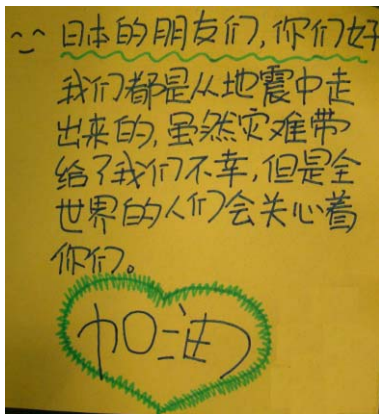 日本的朋友们,你们好
我们都是从地震中走
出来的,虽然灾难带
给了我们不幸,但是全
世界的人们会关心着
你们。
加油